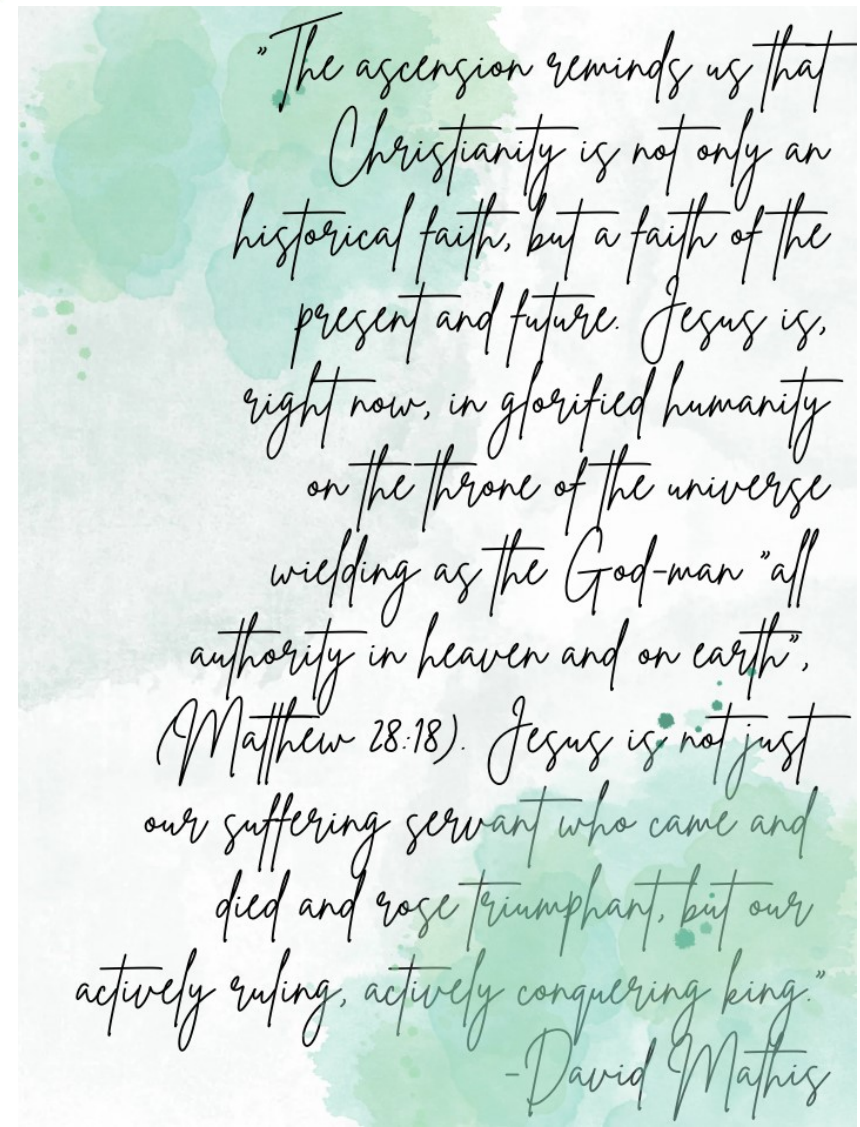 "The ascension reminds us that
Christianity is not only an
historical faith, but a faith of the
present and future. Jesus is,
right now, in glorified humanity
on the throne of the universe
wielding as the God-man "all
authority in heaven and on earth",
(Matthew 28:18). Jesus is not just
our suffering servant who came and
died and rose triumphant, but our
actively ruling, actively conquering king."
-David Mathis